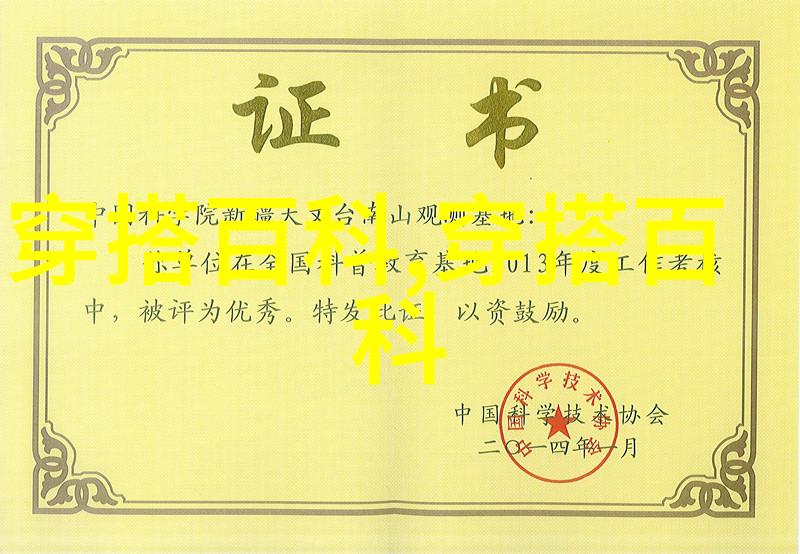 证书
中国科学院新疆天文台南山观测基地:
你单位在全国科普教育基地2013年度工作考核
中，被评为优秀。特发此证，以资鼓励。
穿搭百科,穿搭百
科
中国科学技术协会
二〇一四年一月
中国科学技术协会